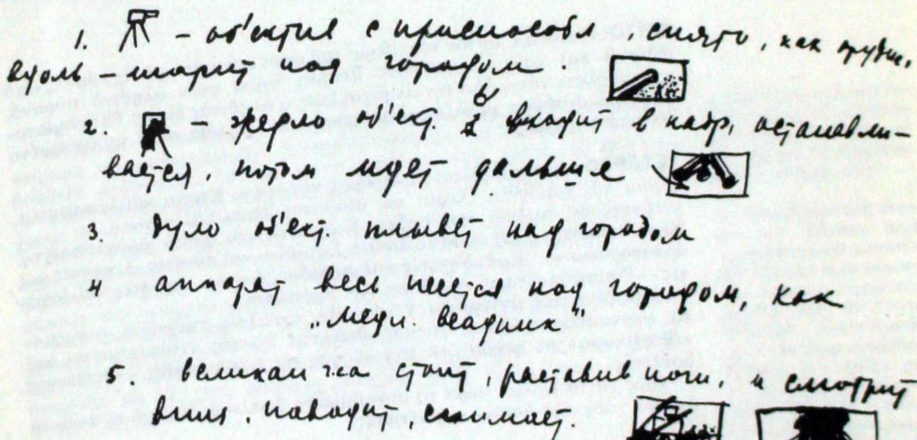 1. – об'ектив с приспособл., снято, как орудие,
вдоль – шарит над городом
2. – жерло об'ект. входит в кадр, останавли-
вается, потом идет дальше
3 дуло об'ект. плывет над городом
4 аппарат весь несется над городом, как
„Медн. всадник"
5. великан-ка стоит, раставив ноги, и смотрит
вниз, наводит, снимает.